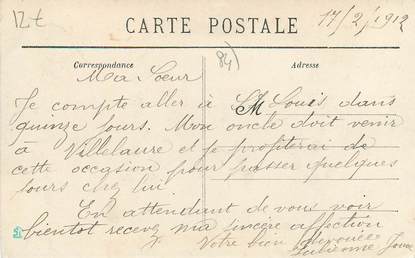 12t
CARTE POSTALE
17/2/1912
84)
Correspondance
Adresse
Ma Soeur
Je compte aller à St Louis dans
quinze jours. Mon oncle doit venir
à Villelaure et je profiterai de
cette occasion pour passer quelques
jours chez lui
En attendant de vous voir
bientot recevez ma sincère affection
Votre bien dévouée